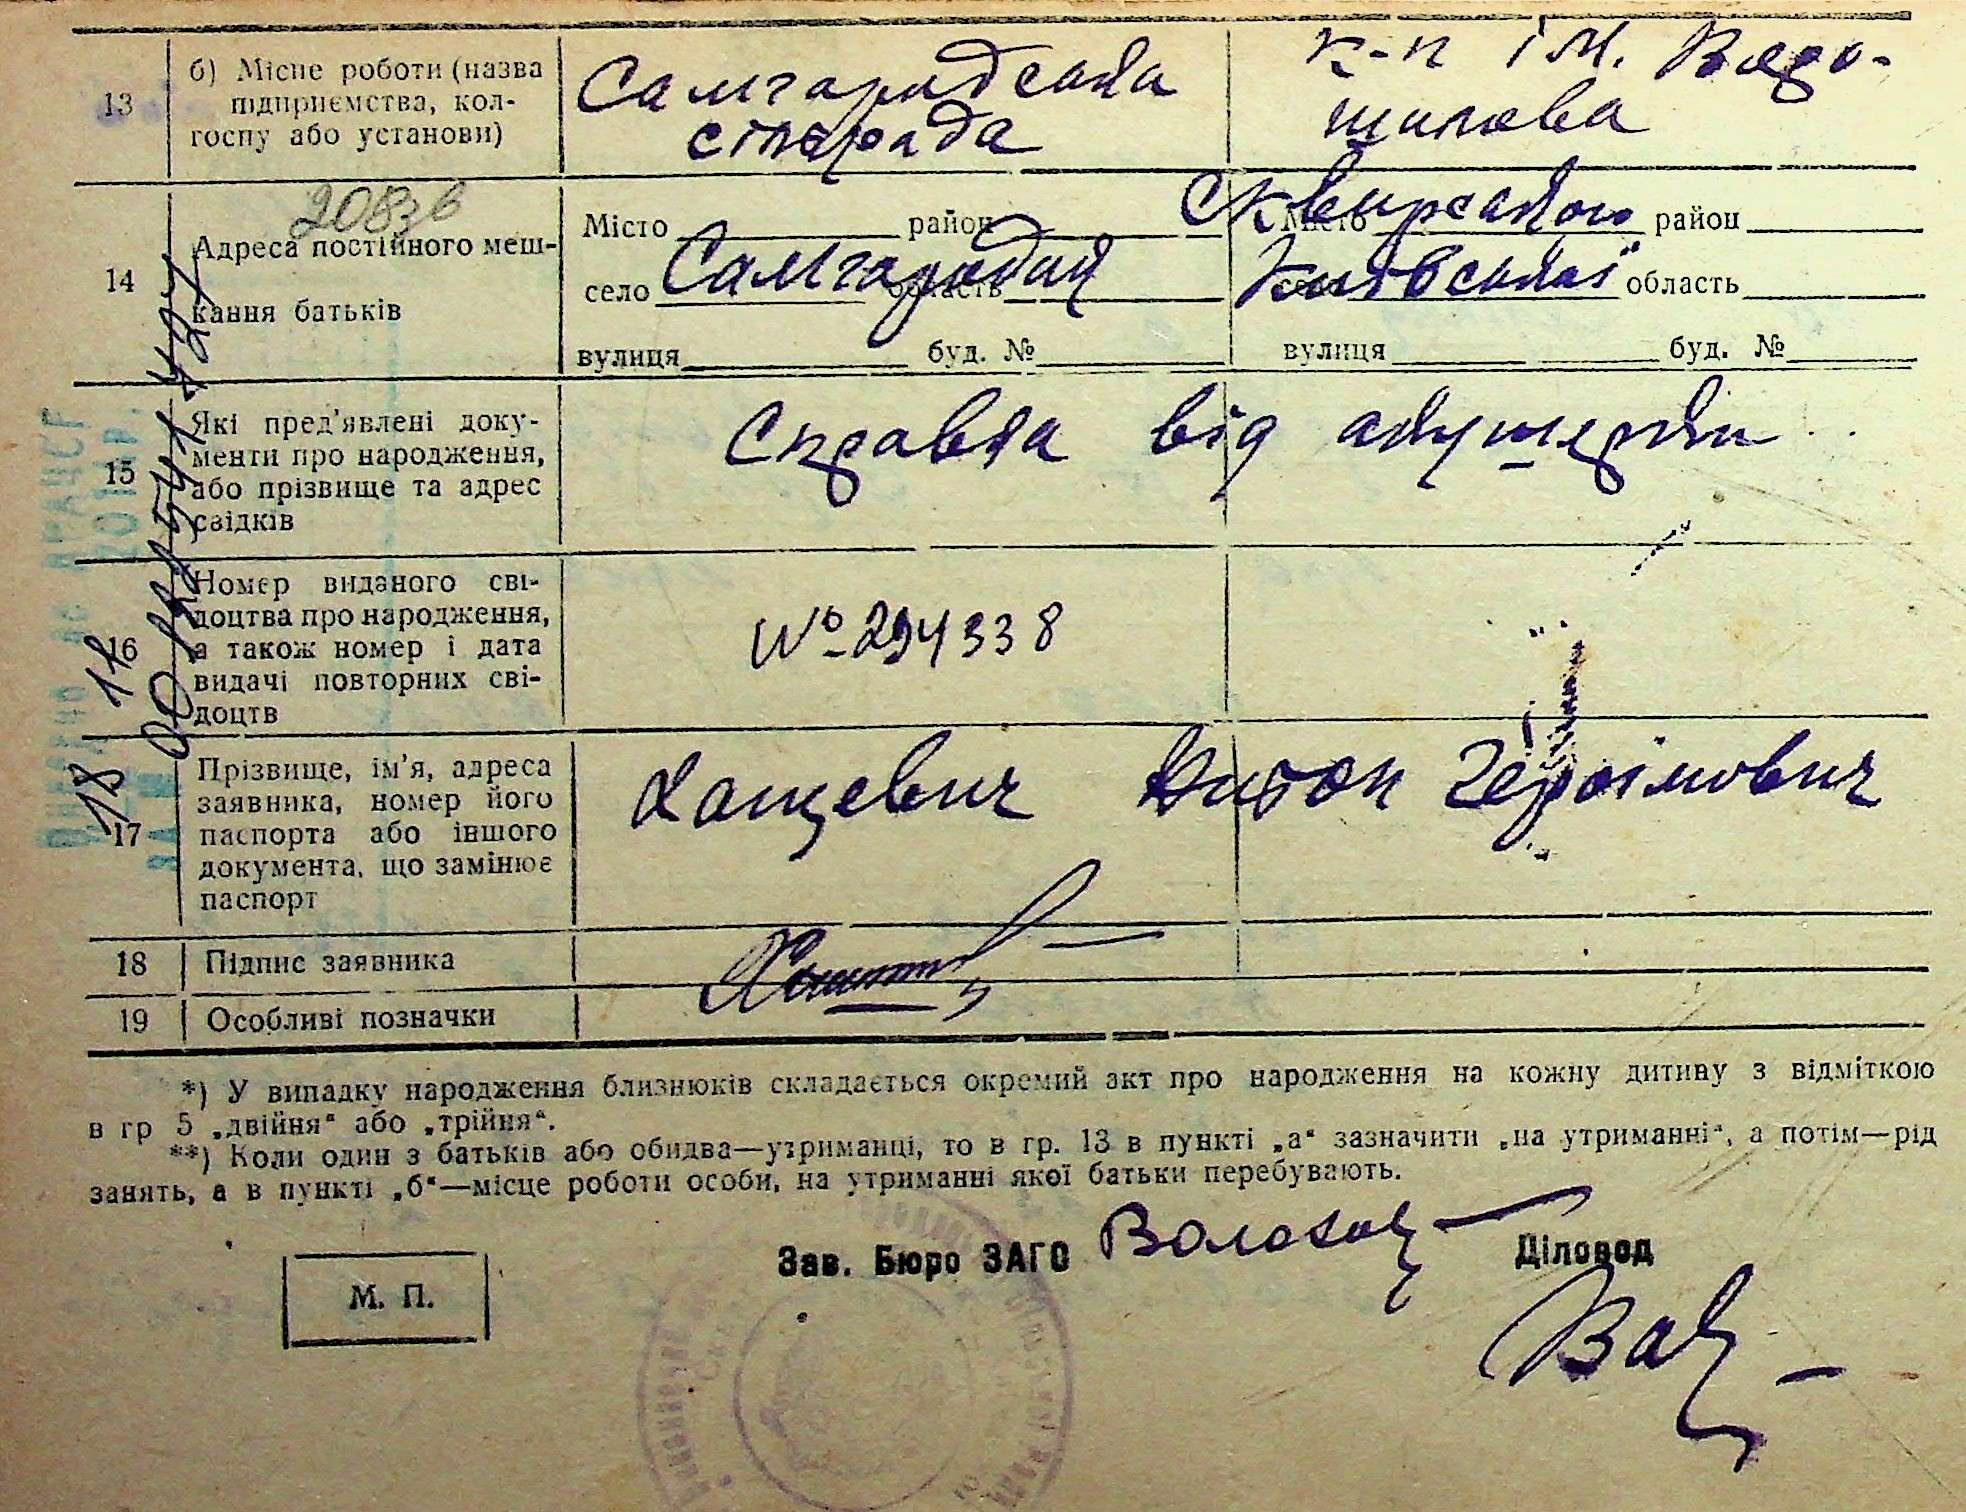 13
б) Місце роботи (назва
підприємства, кол-
госпу або установи)
Самгородська
сільрада
к-п ім. Воро-
шилова
208зв
14
Адреса постійного меш-
кання батьків
Місто район
село Самгородок область
вулиця буд. №
Сквирського
Місто район
Київської
село область
вулиця буд. №
15
Які пред'явлені доку-
менти про народження,
або прізвище та адрес
свідків
Справка від акушерки
16
Номер виданого сві-
доцтва про народження,
а також номер і дата
видачі повторних сві-
доцтв
№ 294338
17
Прізвище, ім'я, адреса
заявника, номер його
паспорта або іншого
документа, що замінює
паспорт
Хащевич Антон Герасімович
18
Підпис заявника
19
Особливі позначки
*) У випадку народження близнюків складається окремий акт про народження на кожну дитину з відміткою
в гр 5 „двійня“ або „трійня“.
**) Коли один з батьків або обидва—утриманці, то в гр. 13 в пункті „а“ зазначити „на утриманні“, а потім—рід
занять, а в пункті „б“—місце роботи особи, на утриманні якої батьки перебувають.
Зав. Бюро ЗАГС
Діловод
М. П.